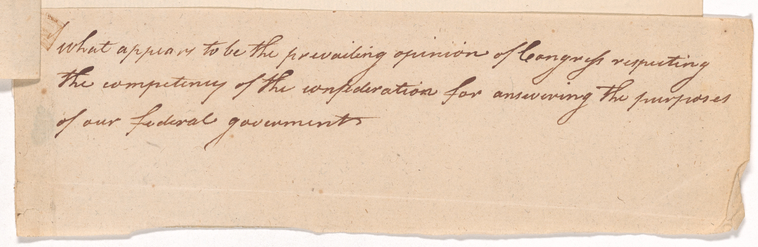 What appears to be the prevailing opinion of Congress respecting
the competency of the confederation for answering the purposes
of our federal goverment